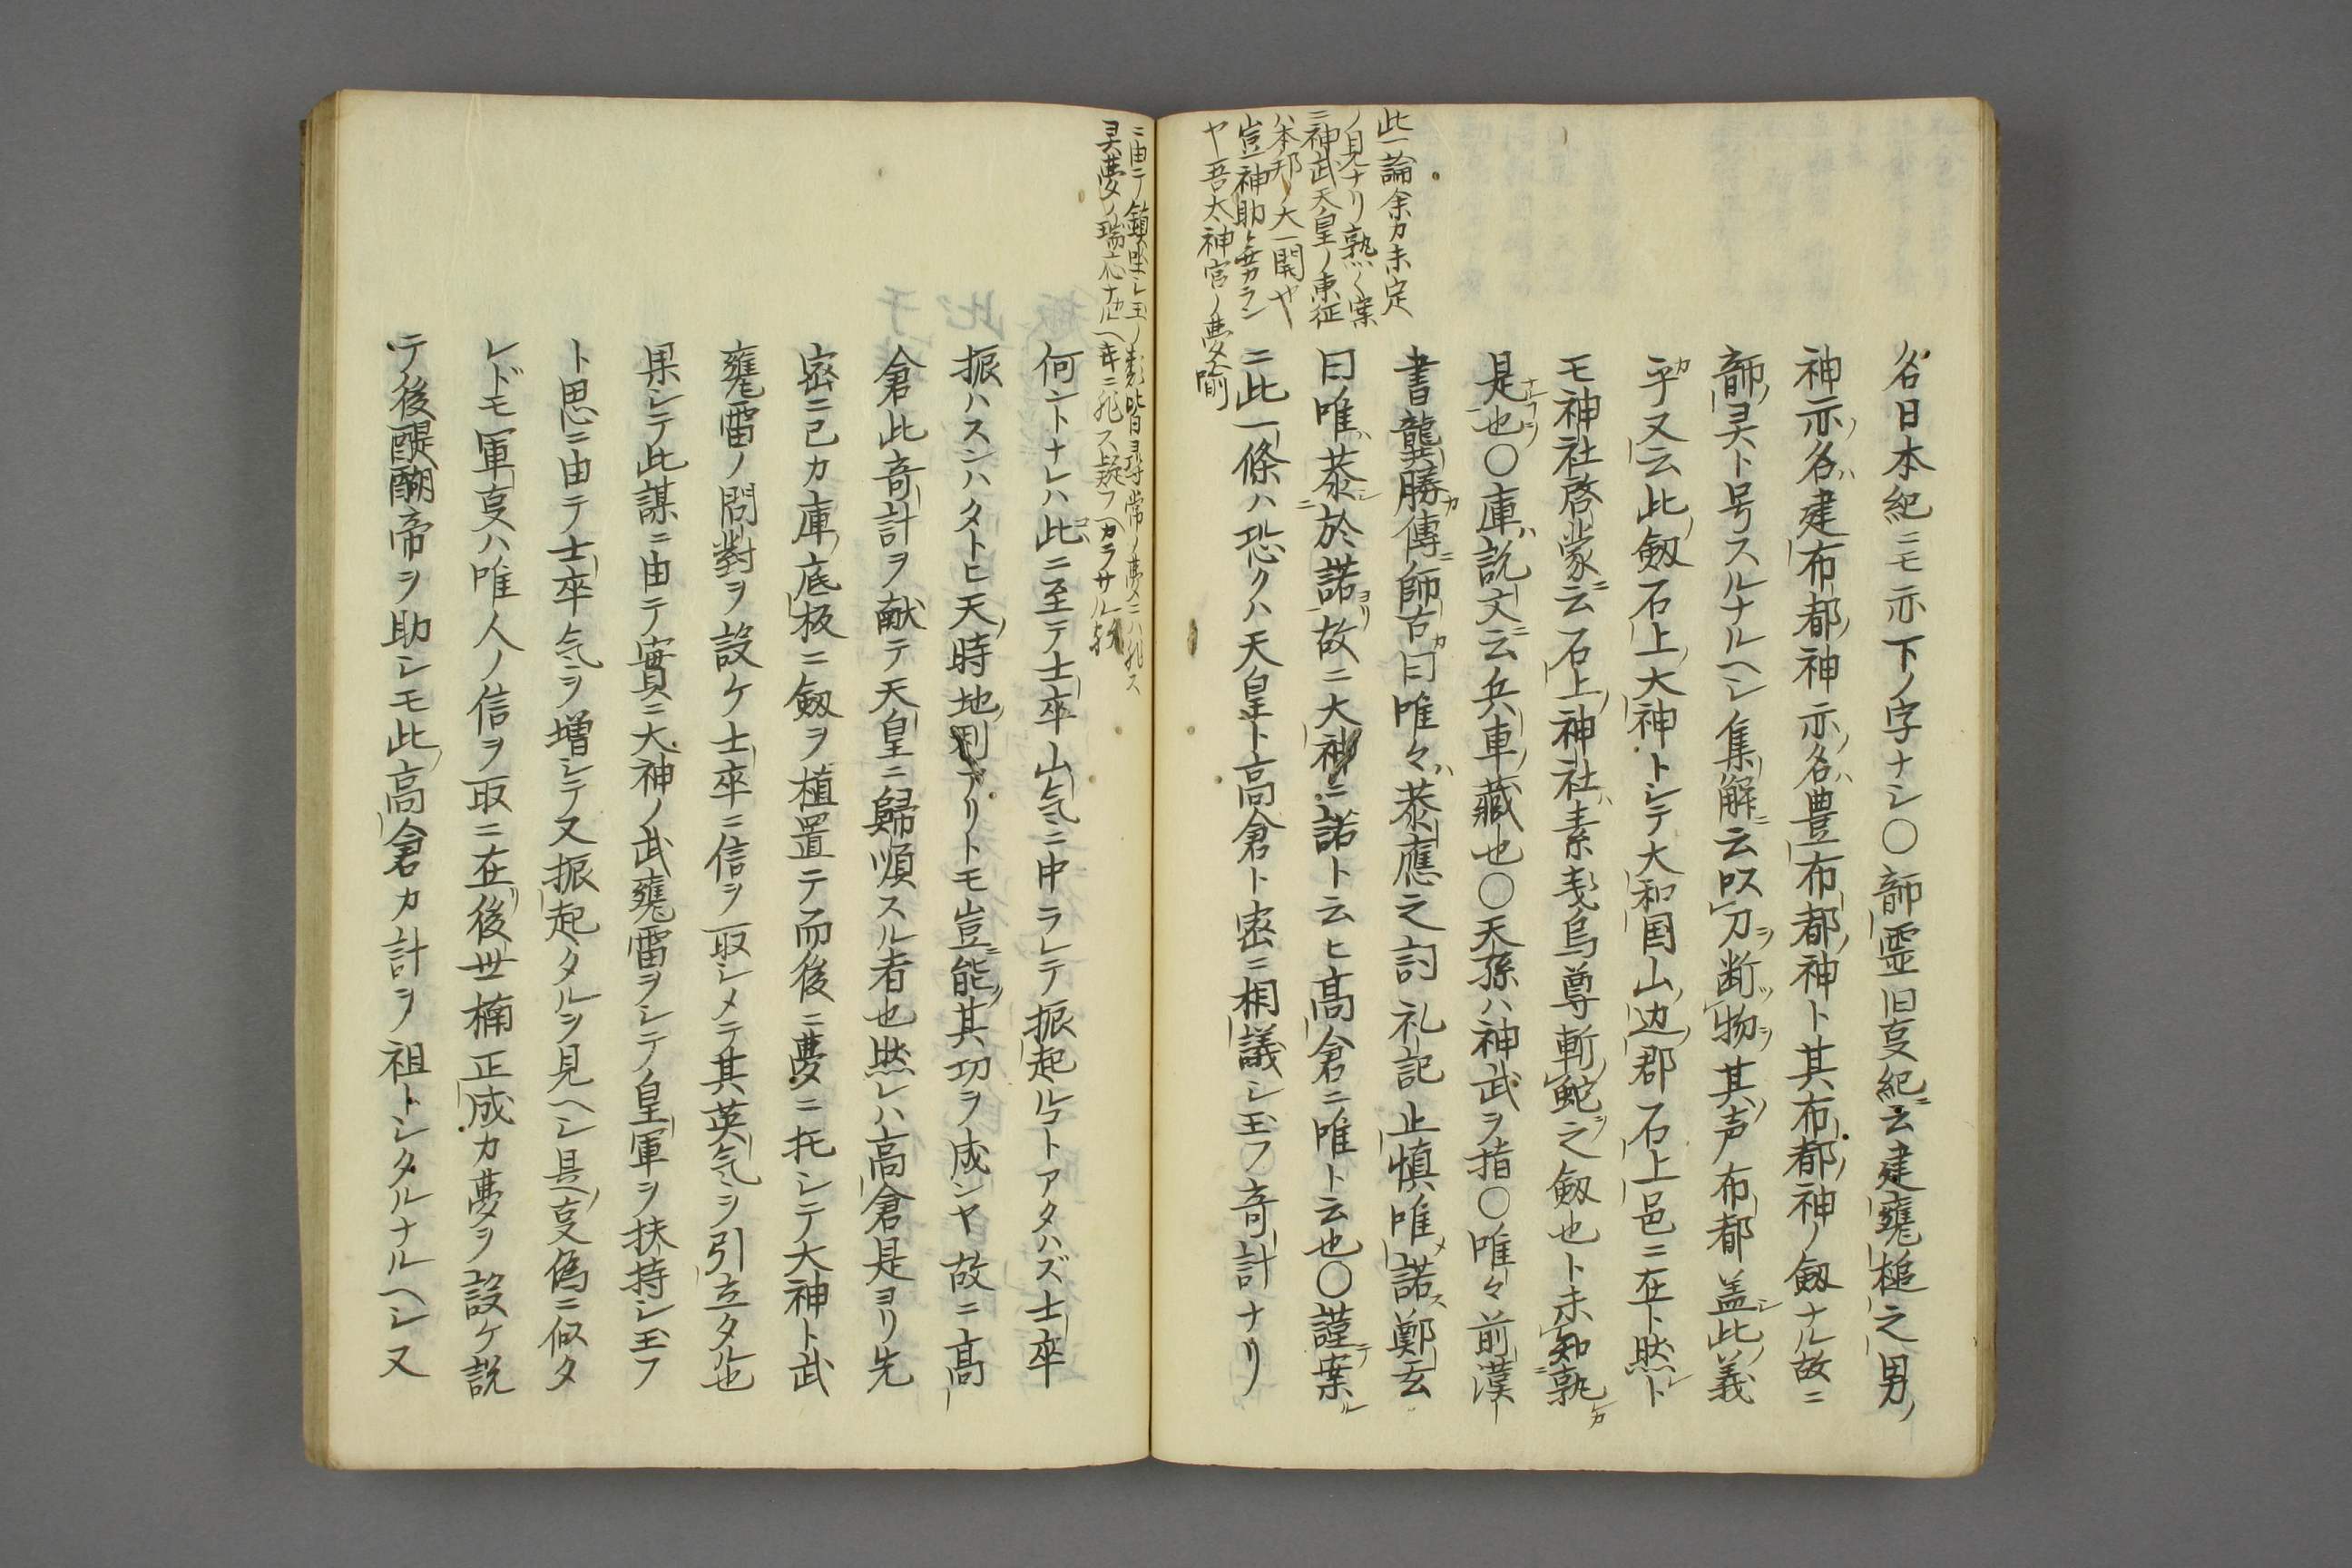 此一論余カ未定
ノ見ナリ熟ク案
ニ神武天皇ノ東征
ハ本邦ノ大一開ヤ
豈神助ト無カラン
ヤ吾太神宮ノ夢喩
名日本紀ニモ亦下ノ字ナシ〇韴霊旧叓紀ニ云建甕槌之男ノ
神亦ノ名ハ建布都ノ神亦ノ名ハ豊布都ノ神ト其布都ノ神ノ釼ナル故ニ
韴ノ㚑ト号スルナルヘシ集解ニ云以刀ヲ断ツ物ヲ其ノ声布都盖シ此ノ義
乎カ又云此ノ釼石上大神トシテ大和国山ノ辺ノ郡石上邑ニ在ト然レト
モ神社啓蒙ニ云石上ノ神社ハ素戔烏尊斬蛇ニ之釼也ト未知ニ孰カ
是ナラン也〇庫ハ説文ニ云兵車ノ藏也〇天孫ハ神武ヲ指〇唯々前漢
書龔勝カ傳ニ師古カ曰唯々ハ恭應之詞礼記止慎唯メ諾ス鄭玄
曰唯ハ恭シニ於諾ヨリ故ニ大神ニ諾ト云ヒ髙倉ニ唯ト云也〇謹テ案ル
ニ此一條ハ恐クハ天皇ト高倉ト密ニ相議シ玉フ奇計ナリ
ニ由テ鎮坐シ玉ノ類皆尋常ノ夢ニハ非ス
㚑夢ノ瑞応ナレハ一ニ非ス疑フヘカラサル歟
何ントナレハ此コヽニ至テ士卒山気ニ中ラレテ振起ルコトアタハズ士卒
振ハスンハタトヒ天ノ時地ノ利アリトモ豈ニ能ク其功ヲ成ンヤ故ニ高
倉此奇計ヲ献テ天皇ニ歸順スル者也然レハ高倉是ヨリ先
密ニ己カ庫ノ底板ニ釼ヲ植置テ而後ニ夢ニ托シテ大神ト武
甕雷ノ問對ヲ設ケ士卒ニ信ヲ取シメテ其英気ヲ引立タル也
果シテ此謀ニ由テ實ニ大神ノ武甕雷ヲシテ皇軍ヲ扶持シ玉フ
ト思ニ由テ士卒気ヲ増シテ又振起タルヲ見ヘシ是ノ叓偽ニ似タ
レドモ軍叓ハ唯人ノ信ヲ取ニ在リ後世楠正成カ夢ヲ設ケ説
テ後醍醐帝ヲ助シモ此ノ高倉カ計ヲ祖トシタルナルヘシ又